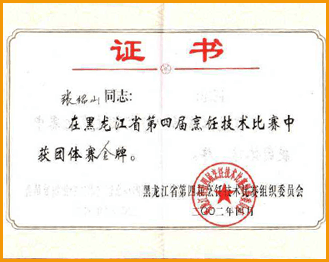 证书
张绍山同志：
在黑龙江省第四届烹饪技术比赛中
获团体赛金牌。
黑龙江省第四届烹饪技术比赛组织委员会
二〇〇二年四月